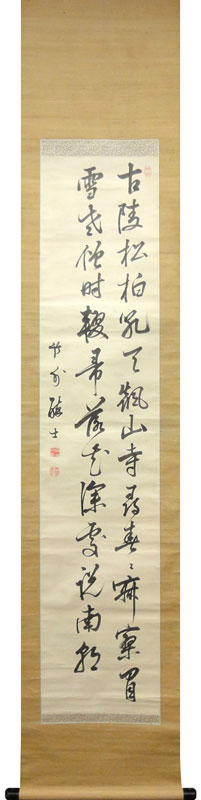 古陵松柏吼天飆山寺尋春々寂寥眉
雪老僧時輟帚落花深處説南朝
竹外酔士